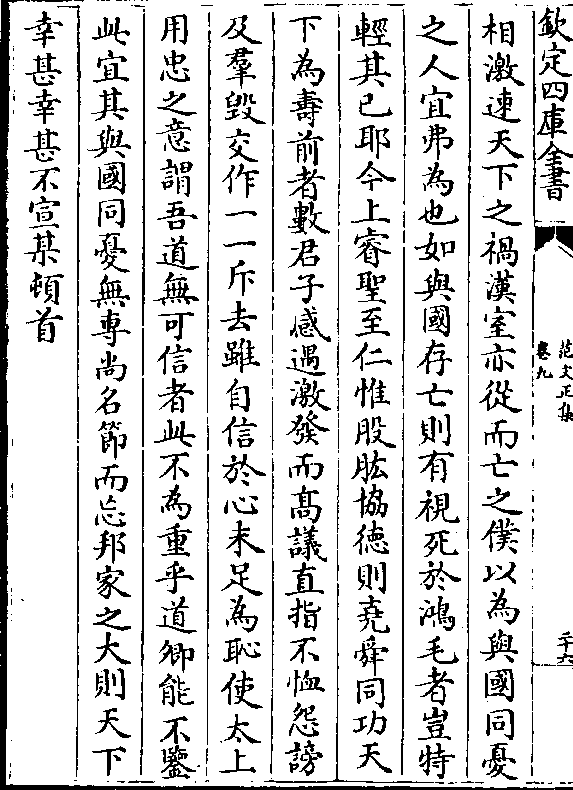 欽定四庫全書
范文正集
卷九
二十六
相激速天下之禍漢室亦從而亡之僕以為與國同憂
之人宜弗為也如與國存亡則有視死於鴻毛者豈特
輕其已耶今上睿聖至仁惟股肱協德則堯舜同功天
下為壽前者數君子感遇激發而髙議直指不恤怨謗
及羣毀交作一一斥去雖自信於心未足為恥使太上
用忠之意謂吾道無可信者此不為重乎道卿能不鑒
此宜其與國同憂無專尚名節而忘邦家之大則天下
幸甚幸甚不宣某頓首